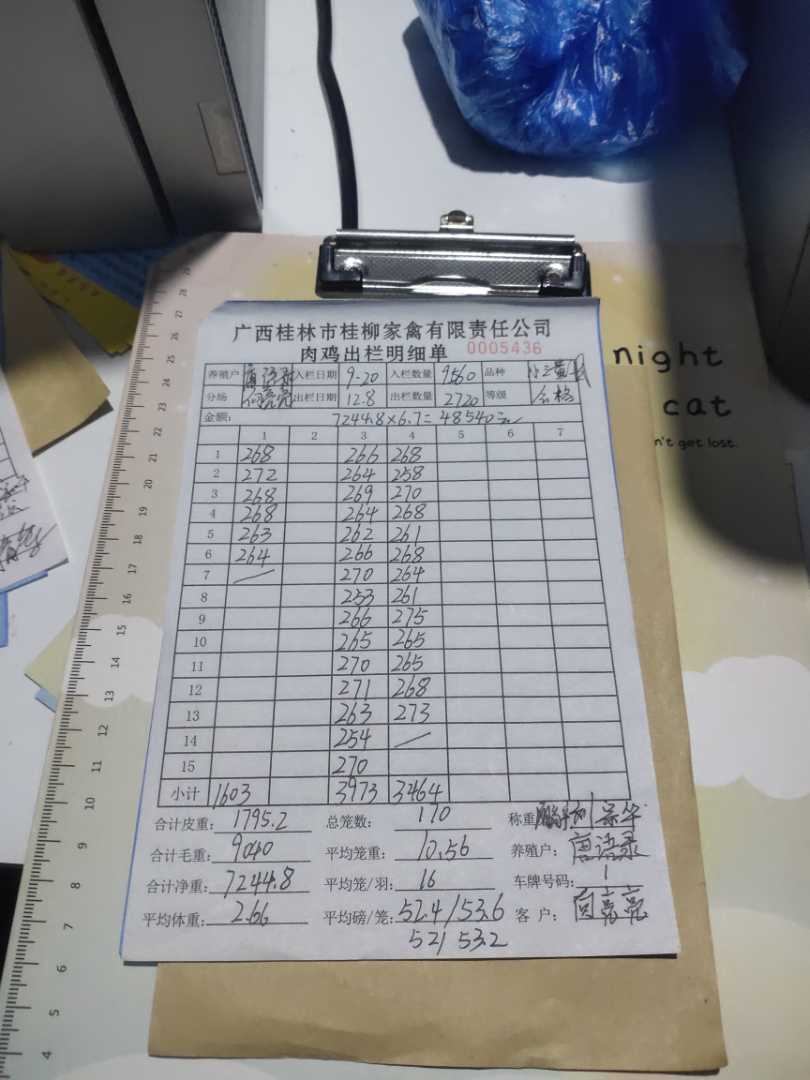 广西桂林市桂柳家禽有限责任公司
肉鸡出栏明细单 0005436
养殖户 唐语录 入栏日期 9-20 入栏数量 9560 品种
分场 何亮亮 出栏日期 12.8 出栏数量 2720 等级 合格
金额: 7244.8×6.7=48540元
1 2 3 4 5 6 7
1 268 266 268
2 272 264 258
3 268 269 270
4 268 264 268
5 263 262 261
6 264 266 268
7 270 264
8 253 261
9 266 275
10 265 265
11 270 265
12 271 268
13 263 273
14 254
15 270
小计 1603 3973 3464
合计皮重: 1795.2 总笼数: 170 称重
合计毛重: 9040 平均笼重: 10.56 养殖户: 唐语录
合计净重: 7244.8 平均笼/羽: 16 车牌号码: 1
平均体重: 2.66 平均磅/笼: 52.4/53.6 客 户:
52/ 53.2
night
cat
n't get lost.
29
28
27
26
25
24
23
22
21
20
19
18
17
16
15
14
13
12
11
10
9
8
7
6
5
4